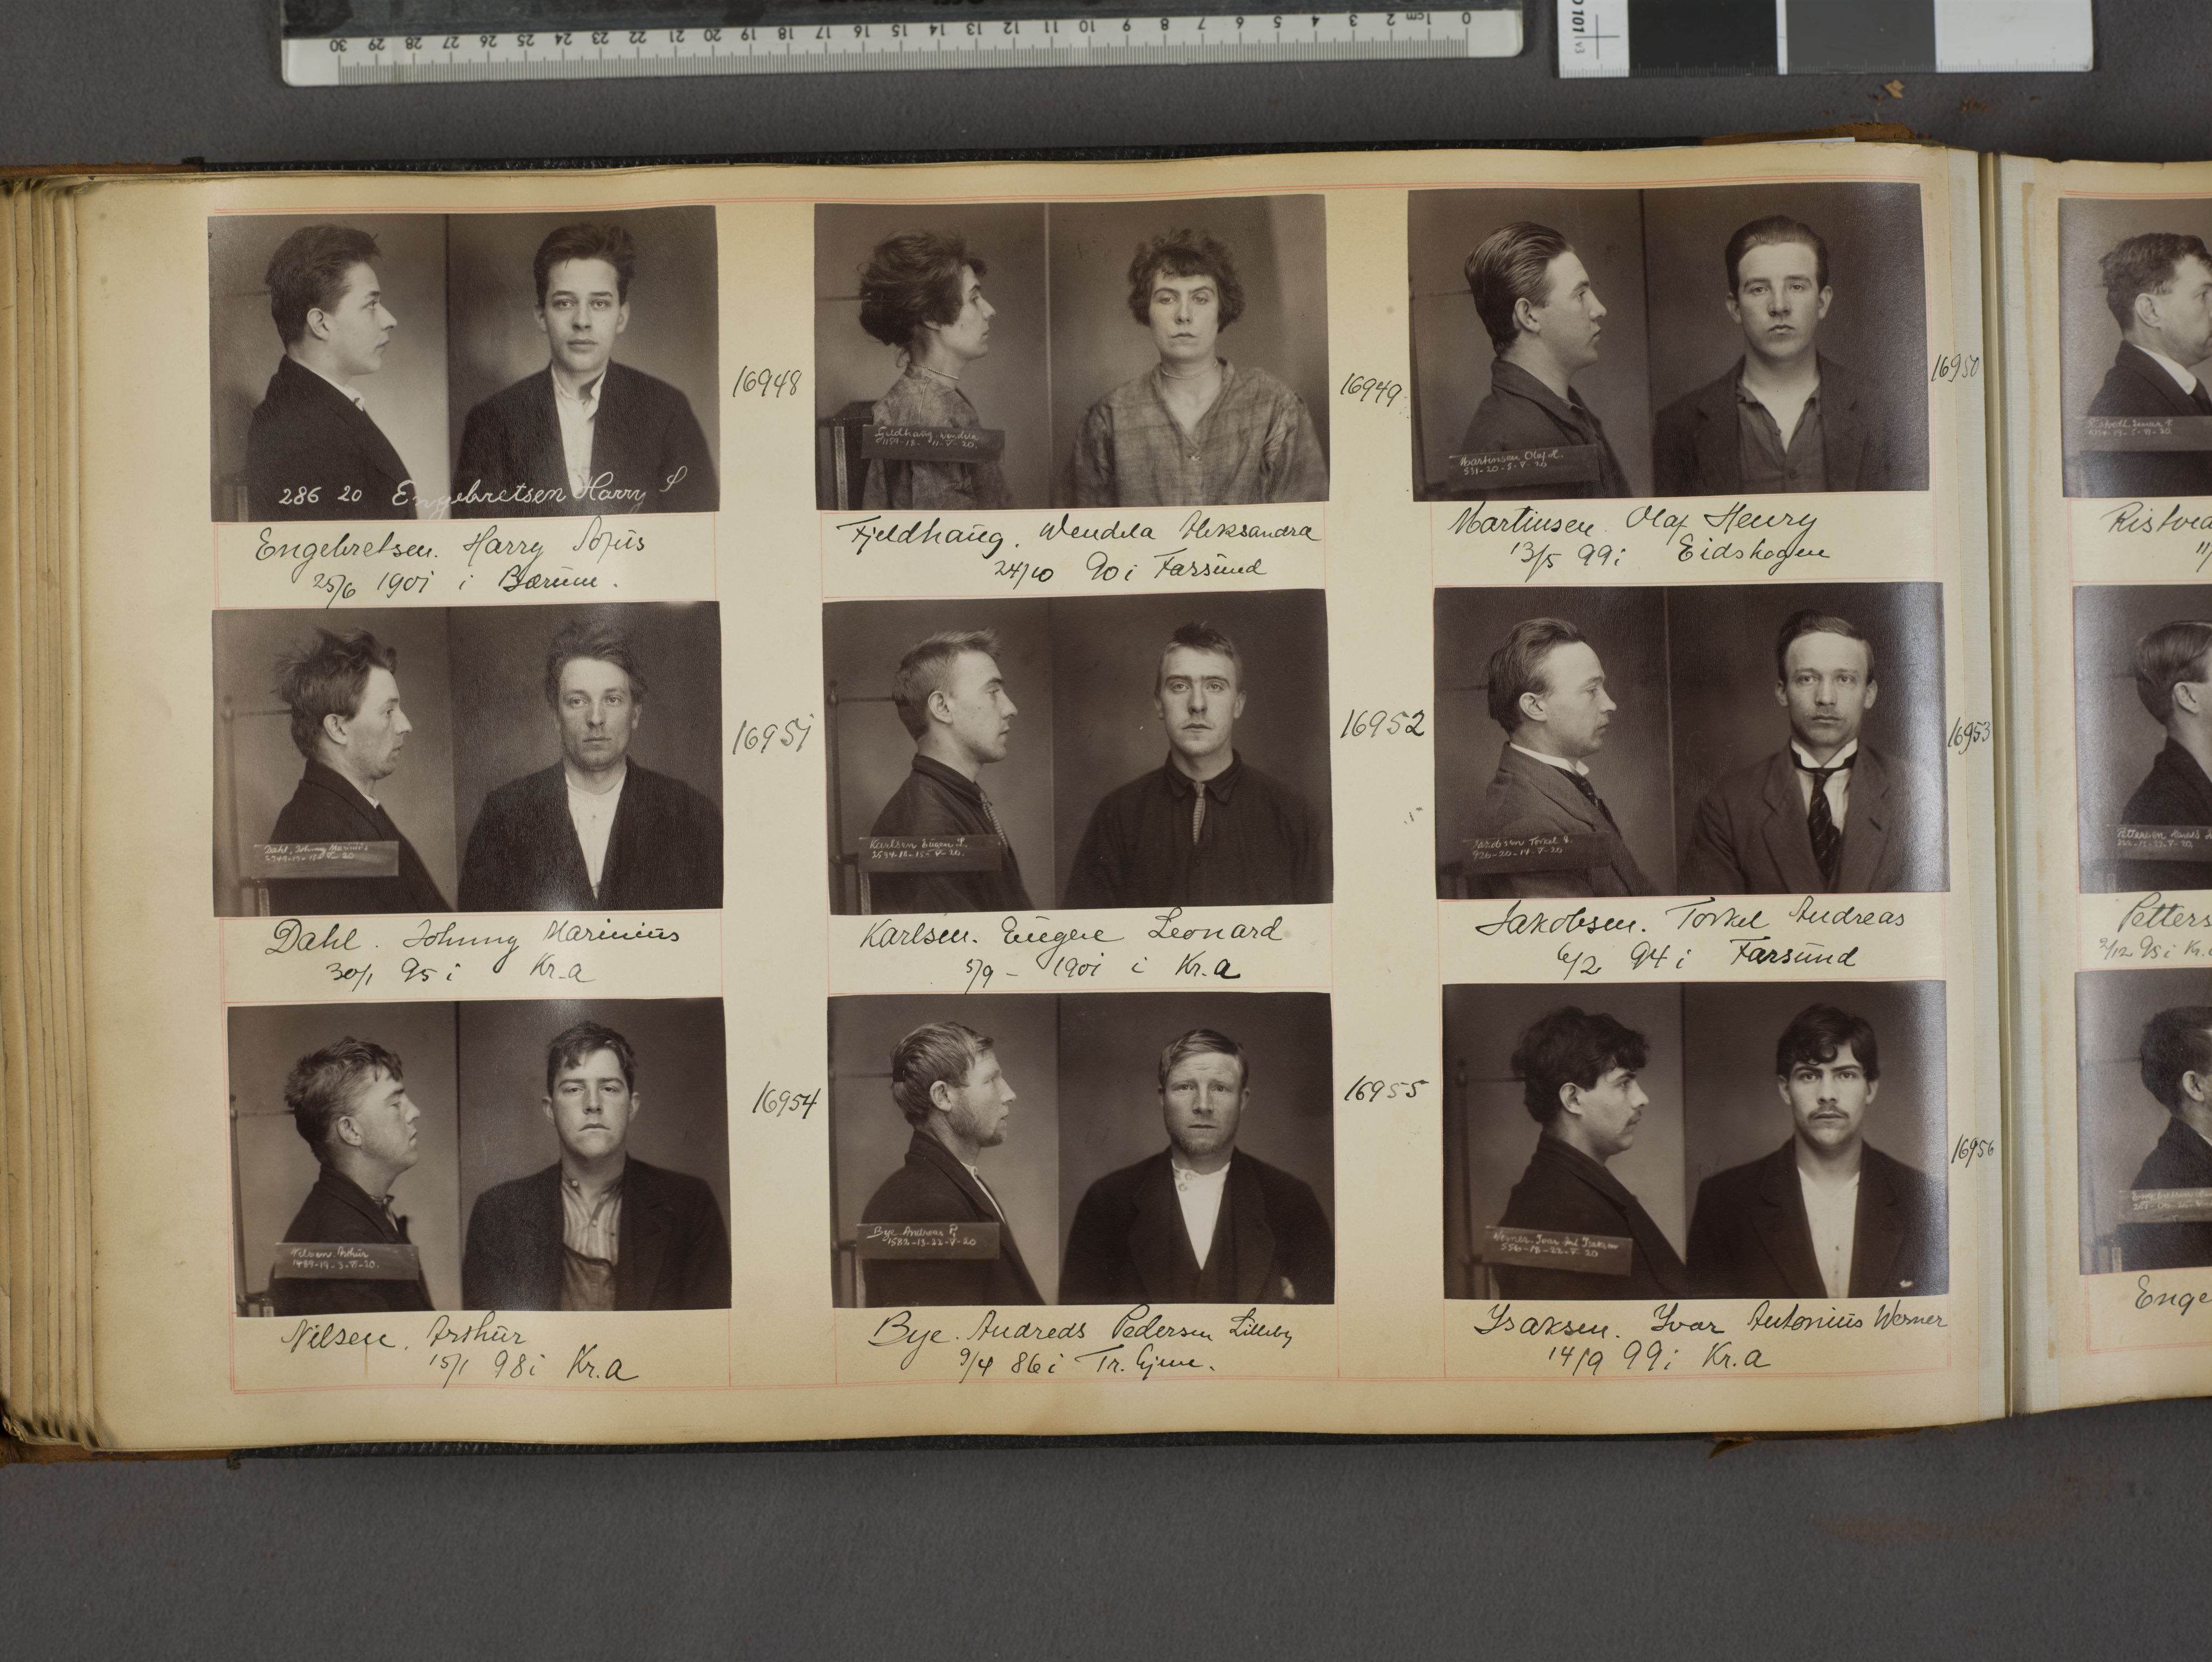 0 1cm 2 3 4 5 6 7 8 9 10 11 12 13 14 15 16 17 18 19 20 21 22 23 24 25 26 27 28 29 30
101 v3
286 20 Engebretsen Harry S
16948
Engebretsen. Harry Sofus
25/6 1901 i Bærum.
Fjeldhaug Wendela
1159-18- 11-V-20.
16949
Fjeldhaug. Wendela Aleksandra
24/10 90 i Farsund
Martinsen Olaf H.
531-20-5-V-20
16950
Martinsen Olaf Henry
13/5 99 i Eidskogen
Dahl, Johnny Marinius
V-20
16951
Dahl. Johnny Marinius
30/1 95 i Kr.a
Karlsen Eugen L.
2534-18-15-V-20.
16952
Karlsen. Eugene Leonard
5/9 - 1901 i Kr.a
Jakobsen Torkel A.
926-20-14-V-20.
16953
Jakobsen. Torkel Andreas
6/2 94 i Farsund
Nilsen. Arthur
1489-19-3-VI-20.
16954
Nilsen. Arthur
15/1 98 i Kr.a
Bye Andreas P.
1582-13-22-V-20
16955
Bye. Andreas Pedersen Lilleby
9/4 86 i Tr. hjem.
Werner, Ivar Isaksen
556-18-22-V-20
16956
Ysaksen. Yvar Antonius Werner
14/9 99 i Kr.a
11/
Pettersen
Petters
2/12 95 i Kr.
Enge